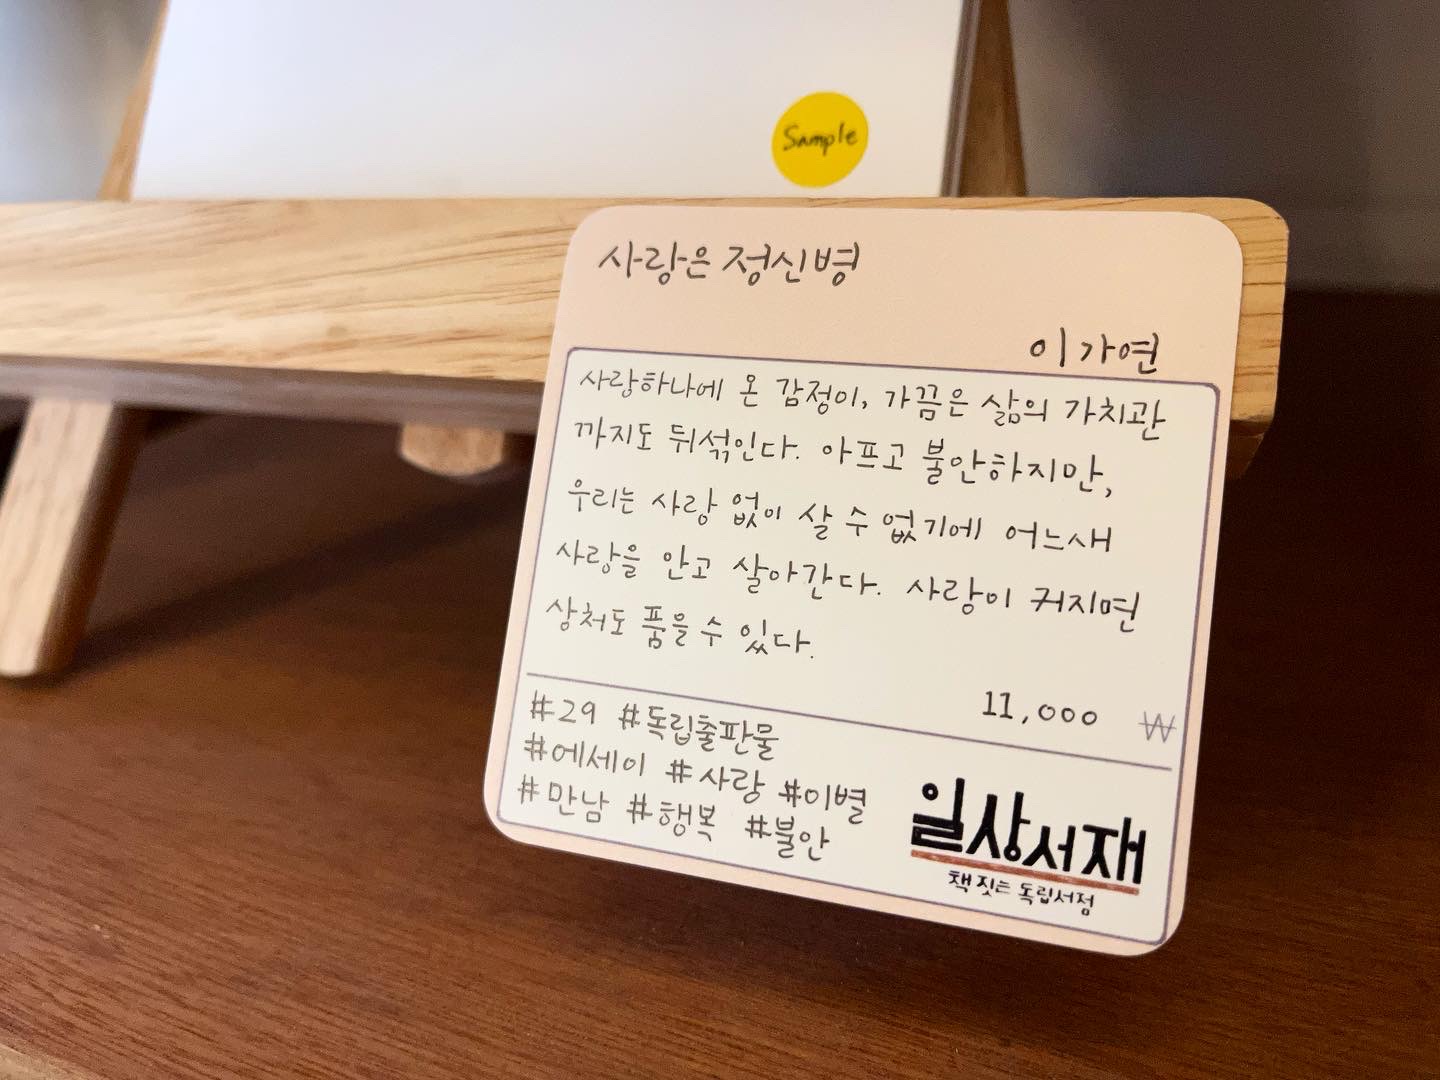 Sample
사랑은 정신병
이가연
사랑하나에 온 감정이, 가끔은 삶의 가치관
까지도 뒤섞인다. 아프고 불안하지만,
우리는 사랑 없이 살 수 없기에 어느새
사랑을 안고 살아간다. 사랑이 커지면
상처도 품을 수 있다.
11,000 ₩
#29 #독립출판물
#에세이 #사랑 #이별
#만남 #행복 #불안
일상서재
책 짓는 독립서점